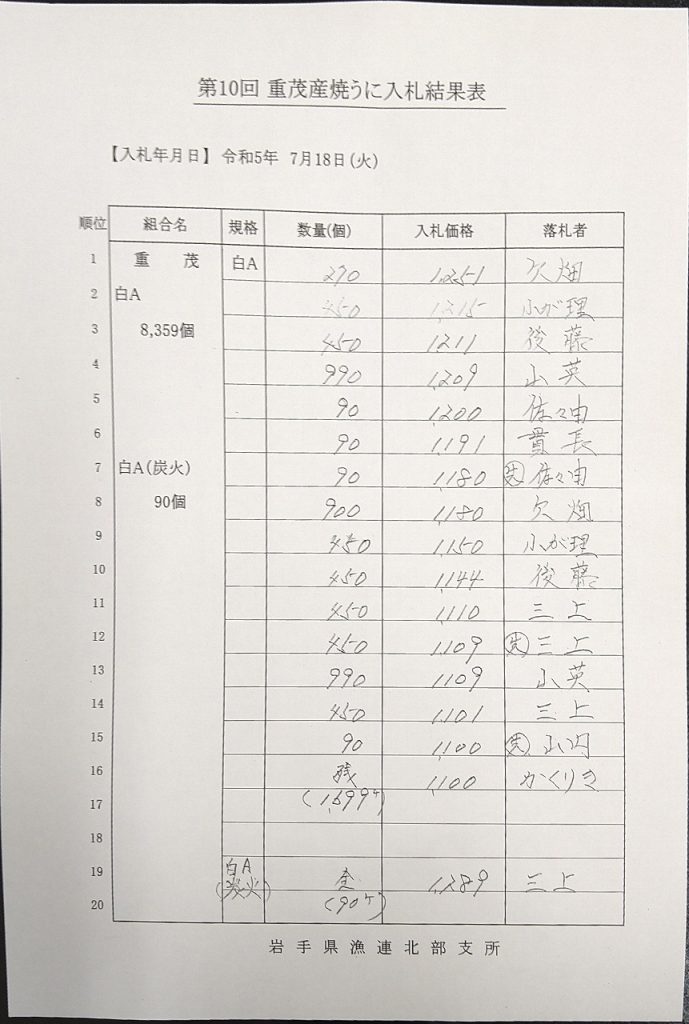 第10回 重茂産焼うに入札結果表
【入札年月日】 令和5年 7月18日(火)
順位 組合名 規格 数量(個) 入札価格 落札者
1 重茂 白A 270 1,251 欠畑
2 白A 450 1,215 小が理
3 8,359個 450 1,211 後藤
4 990 1,209 山英
5 90 1,200 佐々由
6 90 1,191 貫長
7 白A(炭火) 90 1,180 佐々由
8 90個 900 1,180 欠畑
9 450 1,150 小が理
10 450 1,144 後藤
11 450 1,110 三上
12 450 1,109 三上
13 990 1,109 山英
14 450 1,101 三上
15 90 1,100 山内
16 残 1,100 かくりき
17 (1,699ケ)
18
19 白A 全 1,289 三上
20 (炭火) (90ケ)
岩手県漁連北部支所